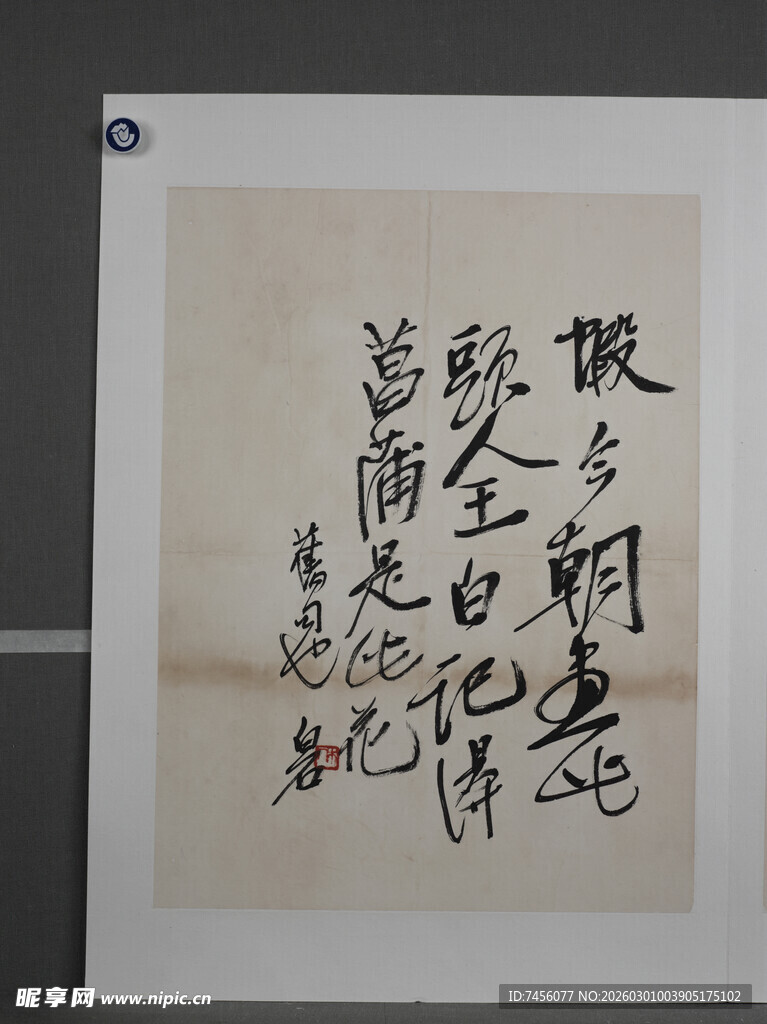 蝦今朝畫此
頭全白記得
菖蒲是此花
舊句也
白石
昵享网 www.nipic.cn
ID:7456077 NO:20260301003905175102